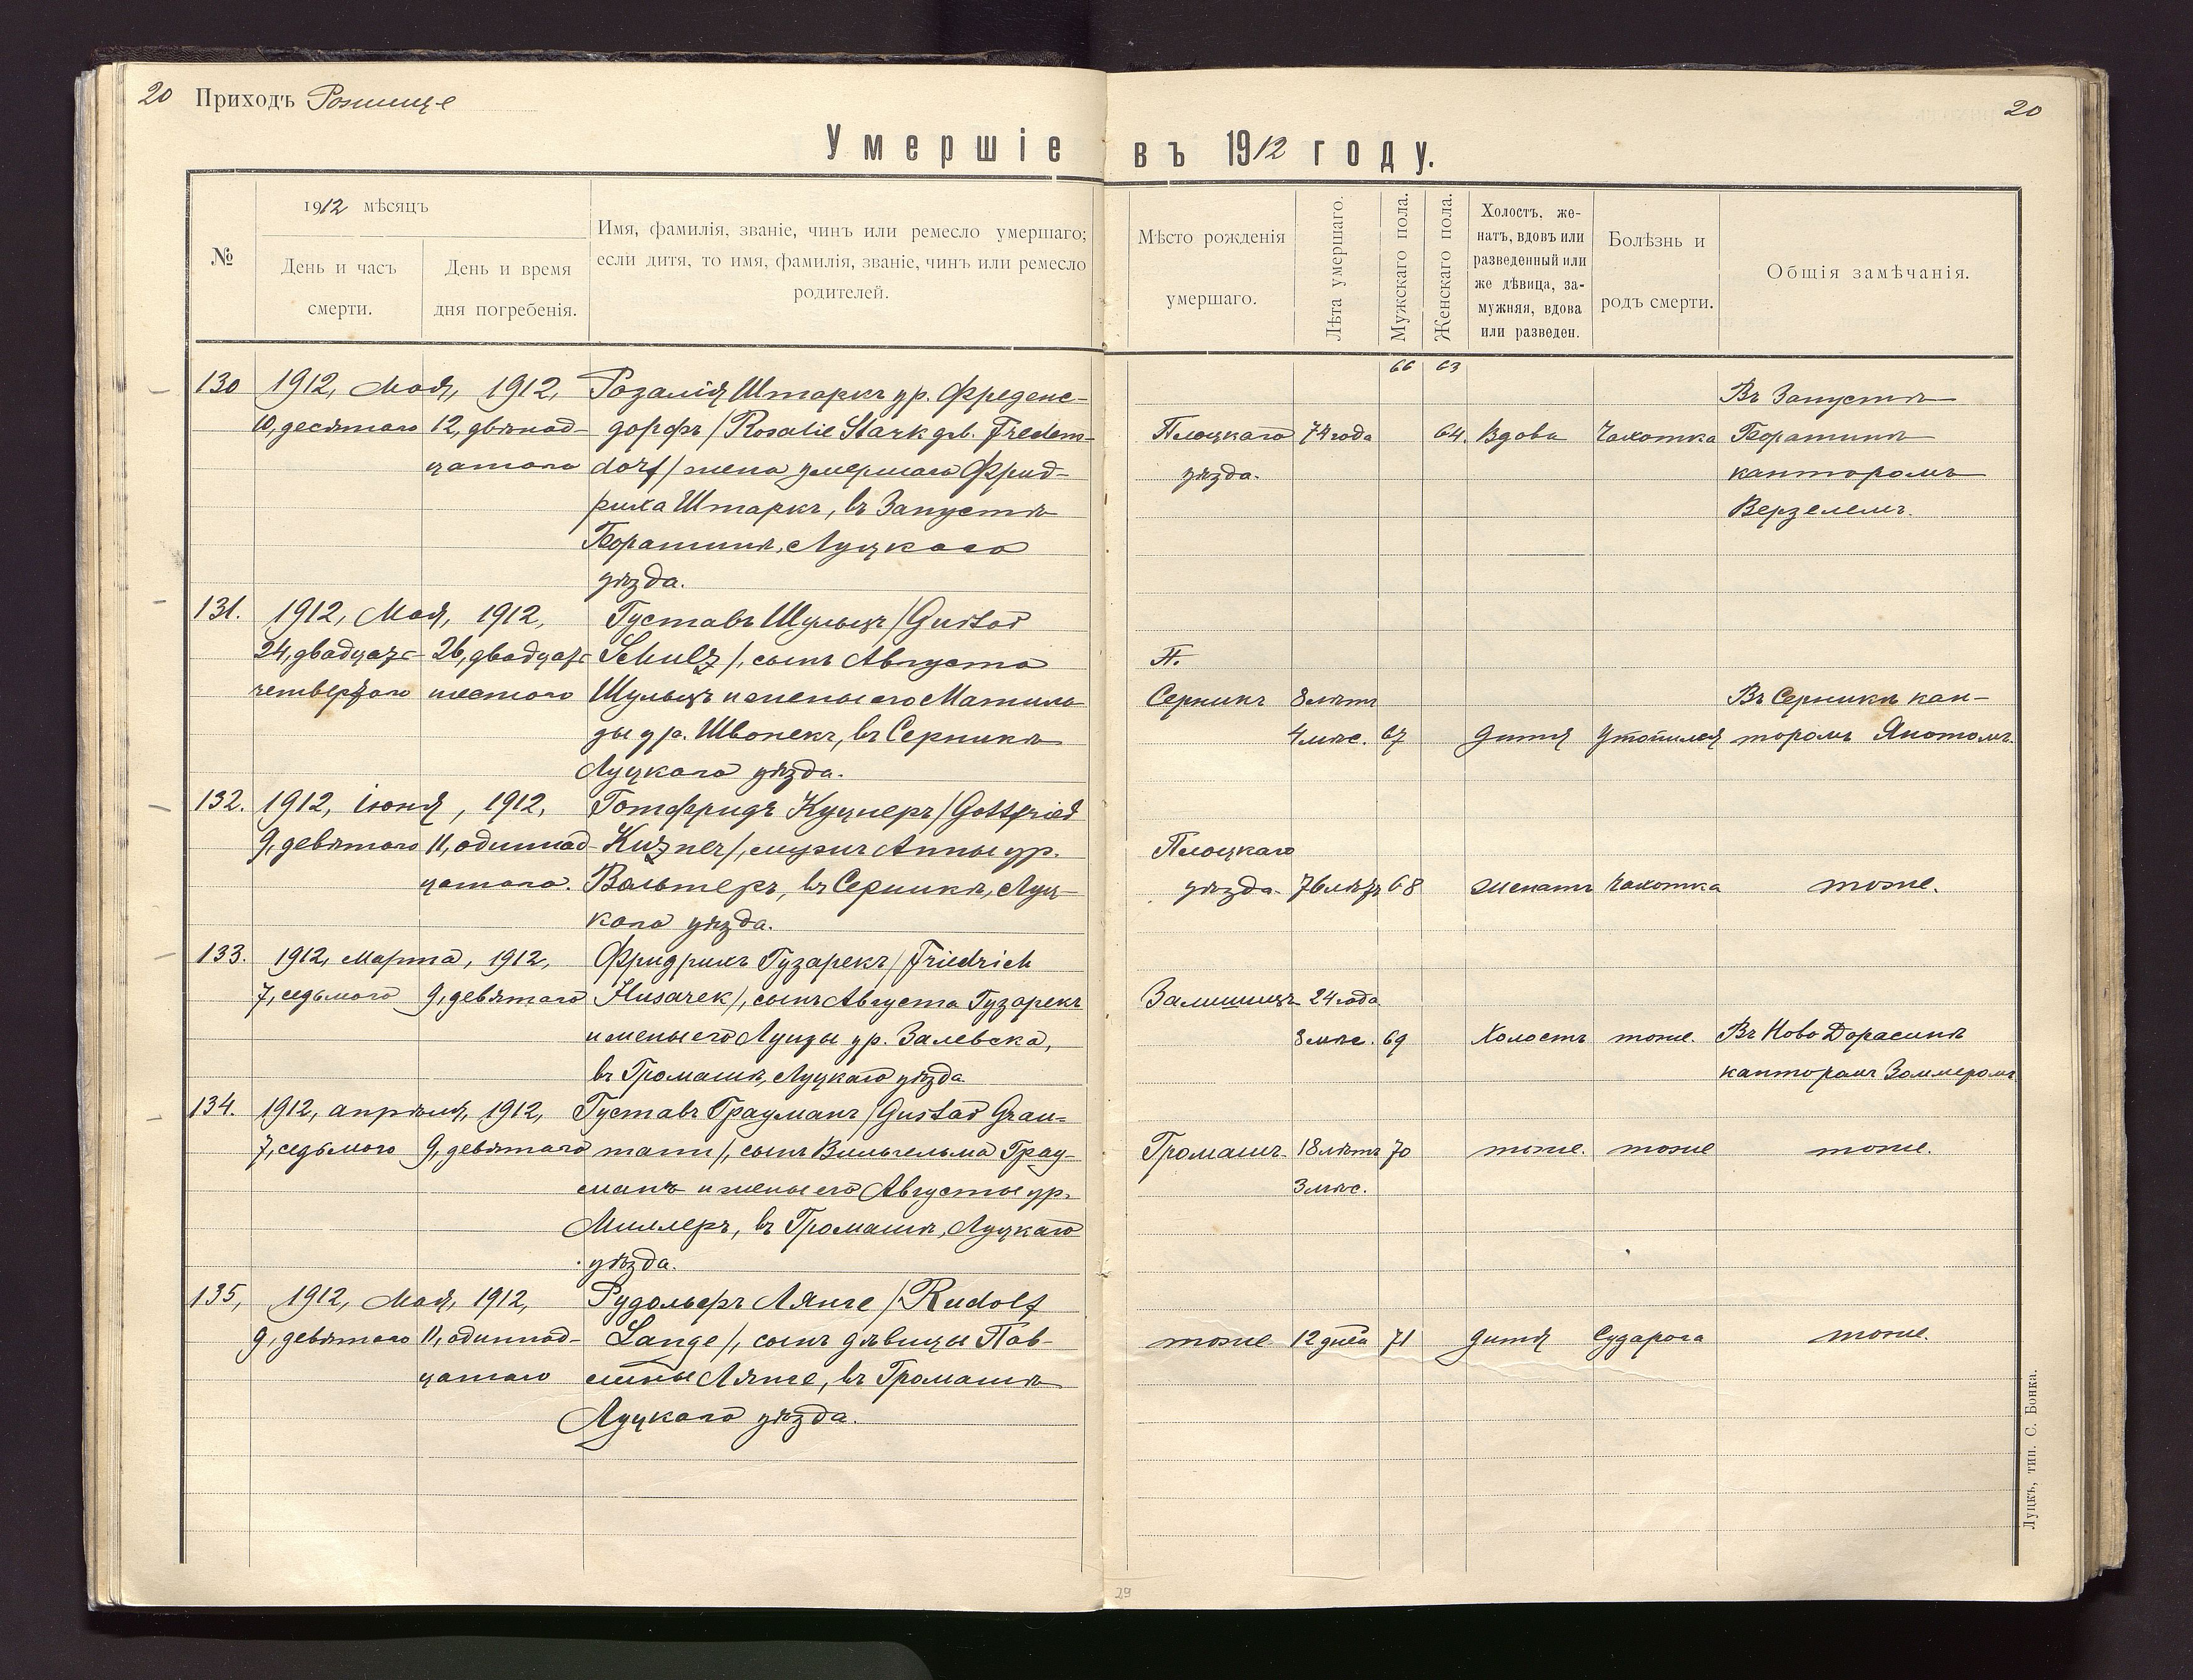 20 Приходъ Рожище
20
Умершіе въ 1912 году.
№
1912 мѣсяцъ
День и часъ смерти.
День и время дня погребенія.
Имя, фамилія, званіе, чинъ или ремесло умершаго;
если дитя, то имя, фамилія, званіе, чинъ или ремесло
родителей.
Мѣсто рожденія
умершаго.
Лѣта умершаго.
Мужскаго пола.
Женскаго пола.
Холостъ, же-
натъ, вдовъ или
разведенный или
же дѣвица, за-
мужняя, вдова
или разведен.
Болѣзнь и
родъ смерти.
Общія замѣчанія.
66 63
130 1912, Мая, 1912, Розалія Штаркъ ур. Фреденс-
10, десятаго 12, двѣнад- дорфъ /Rosalie Stark geb. Fredens-
цатаго dorf/ жена умершаго Фрид-
риха Штаркъ, въ Запустѣ
Боратинѣ, Луцкаго
уѣзда.
Плоцкаго 74 года 64. Вдова Чахотка
уѣзда.
Въ Запустѣ
Боратинѣ
канторомъ
Верзелемъ.
131. 1912, Мая, 1912, Густавъ Шульцъ /Gustav
24, двадцать 26, двадцать Schulz/, сынъ Августа
четвертаго шестаго Шульцъ и жены его Матиль-
ды ур. Швонекъ, въ Серникѣ
Луцкаго уѣзда.
П.
Серникъ 8 лѣтъ Въ Серникѣ кан-
4 мѣс. 67 дитя утопился торомъ Янотомъ.
132. 1912, Іюня, 1912, Готфридъ Куцнеръ /Gottfried
9, девятаго 11, одиннад- Kuzner/, мужъ Анны ур.
цатаго. Вальтеръ, въ Серникѣ, Луц-
каго уѣзда.
Плоцкаго
уѣзда. 76 лѣтъ 68 женатъ Чахотка тоже.
133. 1912, Марта, 1912, Фридрихъ Гузарекъ /Friedrich
7, седьмого 9, девятаго Husarek/, сынъ Августа Гузарекъ
и жены его Луизы ур. Залевска,
въ Громашѣ, Луцкаго уѣзда.
Залишицъ 24 года
8 мѣс. 69 Холостъ тоже. Въ Ново Дорасинѣ
канторомъ Зоммеромъ
134. 1912, апрѣля, 1912, Густавъ Грауманъ /Gustav Grau-
7, седьмого 9, девятаго mann/, сынъ Вильгельма Грау-
манъ и жены его Августы ур.
Миллеръ, въ Громашѣ, Луцкаго
уѣзда.
Громашъ 18 лѣтъ 70 тоже. тоже тоже.
3 мѣс.
135, 1912, Мая, 1912, Рудольфъ Лянге /Rudolf
9, девятаго 11, одиннад- Lange/, сынъ дѣвицы Пав-
цатаго лины Лянге, въ Громашѣ
Луцкаго уѣзда.
тоже 12 дней 71 дитя Сударога тоже.
Луцкъ, тип. С. Бонка.
29